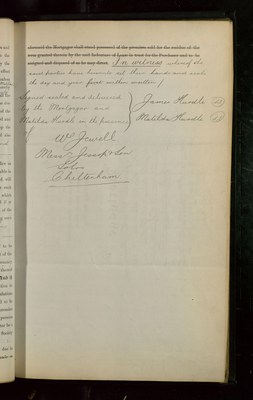 afterwards the Mortgagor shall stand possessed of the premises sold for the residue of the
term granted therein by the said Indenture of Lease in trust for the Purchaser and to be
assigned and disposed of as he may direct. In witness whereof the
said parties have hereunto set their hands and seals
the day and year first within written /
Signed sealed and delivered
by the Mortgagor and
Matilda Hurdle in the presence
of
James Hurdle LS
Matilda Hurdle LS
Wm Jewell
Messrs Jessop & Son
Solrs
Cheltenham